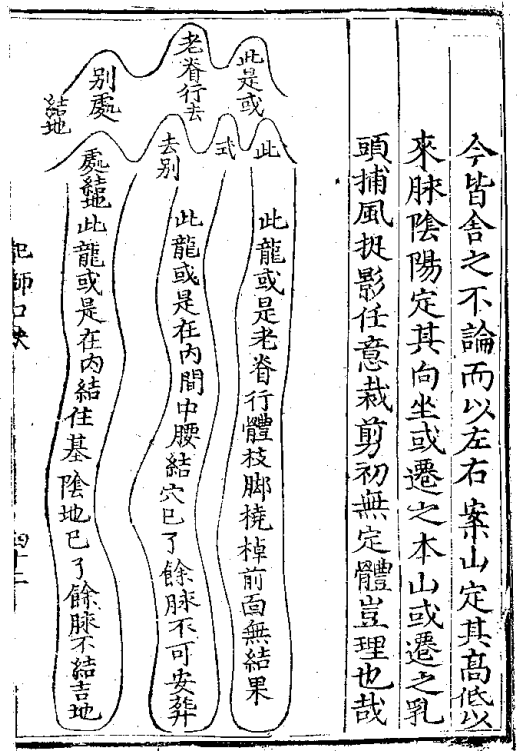 今皆舍之不論而以左右案山定其高低以
來脉陰陽定其向坐或遷之本山或遷之乳
頭捕風捉影任意裁剪初無定體豈理也哉
此是或
老脊行去
别處
結地
此
式
去别
處結地
此龍或是老脊行體枝脚橈棹前面無結果
此龍或是在内間中腰結穴已了餘脉不可安葬
此龍或是在内結住基陰地已了餘脉不結吉地
四十二